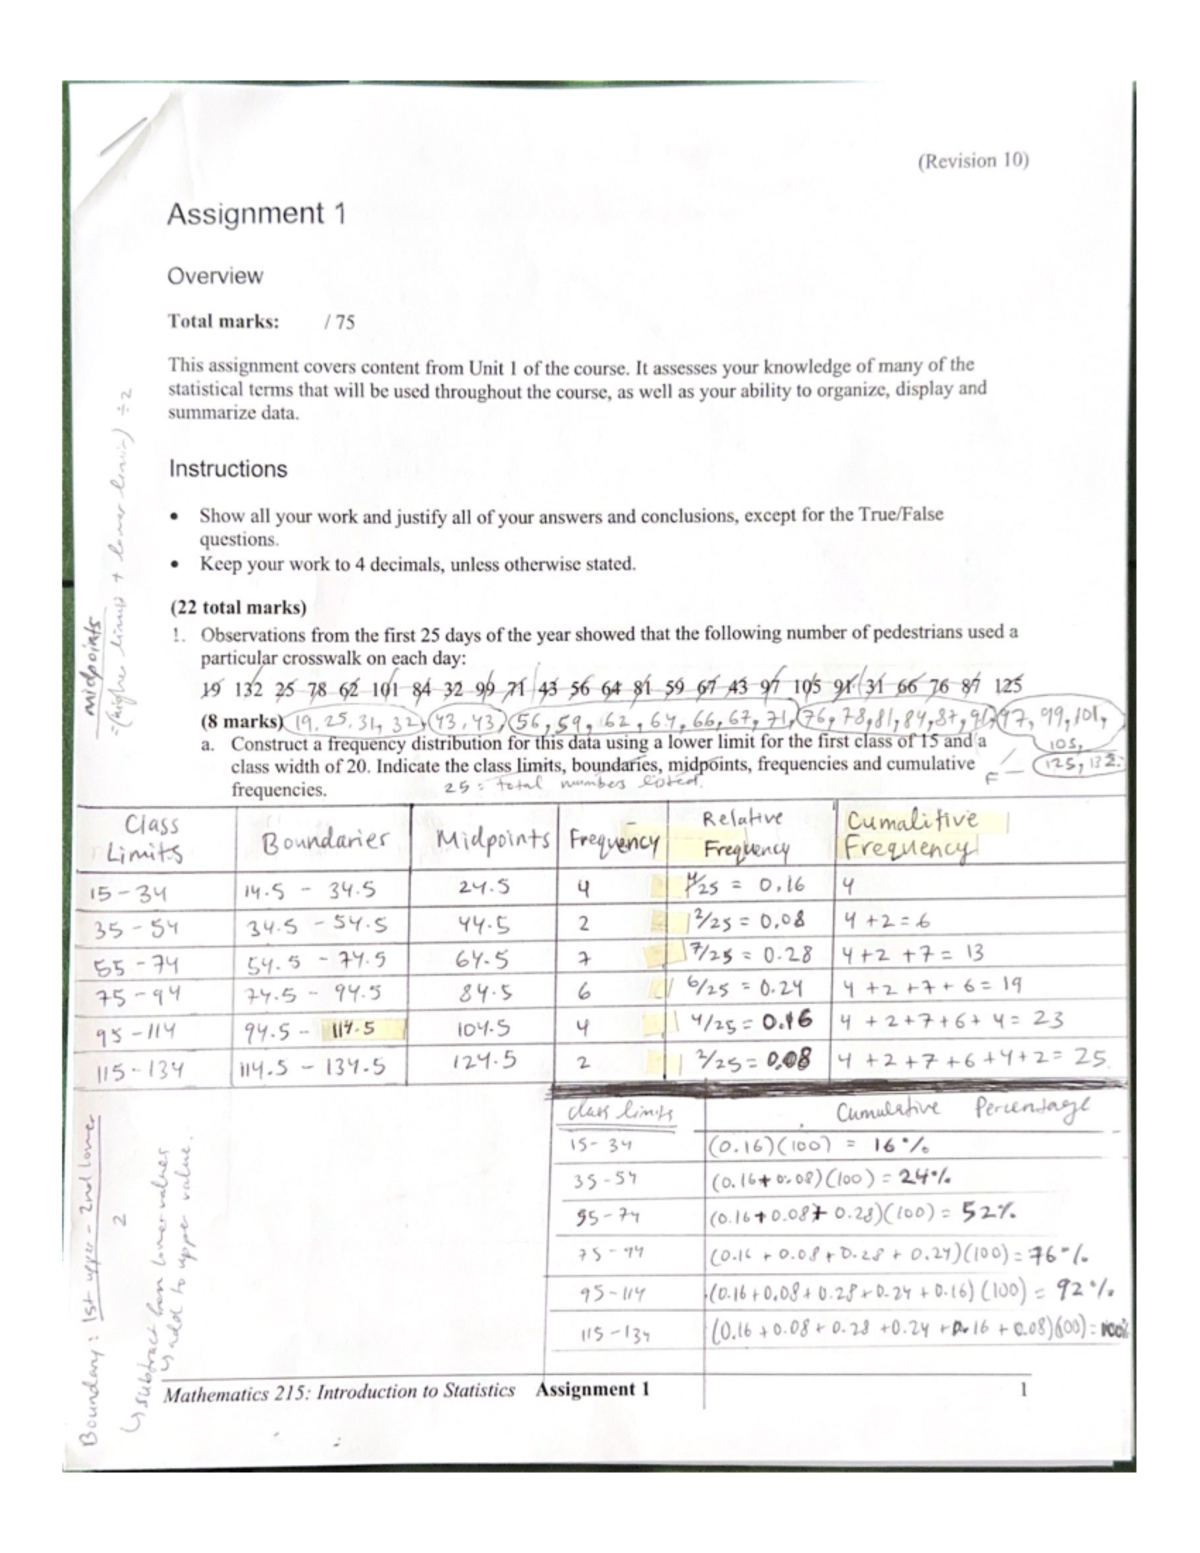 (Revision 10)
Assignment 1
Overview
Total marks: / 75
This assignment covers content from Unit 1 of the course. It assesses your knowledge of many of the
statistical terms that will be used throughout the course, as well as your ability to organize, display and
summarize data.
Instructions
• Show all your work and justify all of your answers and conclusions, except for the True/False
questions.
• Keep your work to 4 decimals, unless otherwise stated.
midpoints
=(higher limit + lower limit) ÷2
(22 total marks)
1. Observations from the first 25 days of the year showed that the following number of pedestrians used a
particular crosswalk on each day:
19 132 25 78 62 101 84 32 99 71 43 56 64 81 59 67 43 97 105 91 31 66 76 87 125
(8 marks) 19, 25, 31, 32, 43, 43, 56, 59, 62, 64, 66, 67, 71, 76, 78, 81, 84, 87, 91, 97, 99, 101,
105,
125, 132
a. Construct a frequency distribution for this data using a lower limit for the first class of 15 and a
class width of 20. Indicate the class limits, boundaries, midpoints, frequencies and cumulative
frequencies. 25 = total numbers listed.
Class Limits Boundaries Midpoints Frequency Relative Frequency Cumalitive Frequency
15-34 14.5 - 34.5 24.5 4 4/25 = 0.16 4
35-54 34.5 - 54.5 44.5 2 2/25 = 0.08 4+2=6
55-74 54.5 - 74.5 64.5 7 7/25 = 0.28 4+2+7= 13
75-94 74.5 - 94.5 84.5 6 6/25 = 0.24 4+2+7+6=19
95-114 94.5 - 114.5 104.5 4 4/25 = 0.16 4+2+7+6+4= 23
115-134 114.5 - 134.5 124.5 2 2/25= 0.08 4+2+7+6+4+2= 25
class limits Cumulative Percentage
15-34 (0.16)(100) = 16%
35-54 (0.16+0.08)(100) = 24%
55-74 (0.16+0.08+0.28)(100) = 52%
75-94 (0.16+0.08+0.28+0.24)(100)=76%
95-114 (0.16+0.08+0.28+0.24+0.16)(100) = 92%
115-134 (0.16+0.08+0.28+0.24+0.16+0.08)(100)=100%
Boundary: 1st upper - 2nd lower
2
↳ subtract from lower values
↳ add to upper value.
Mathematics 215: Introduction to Statistics Assignment 1 1